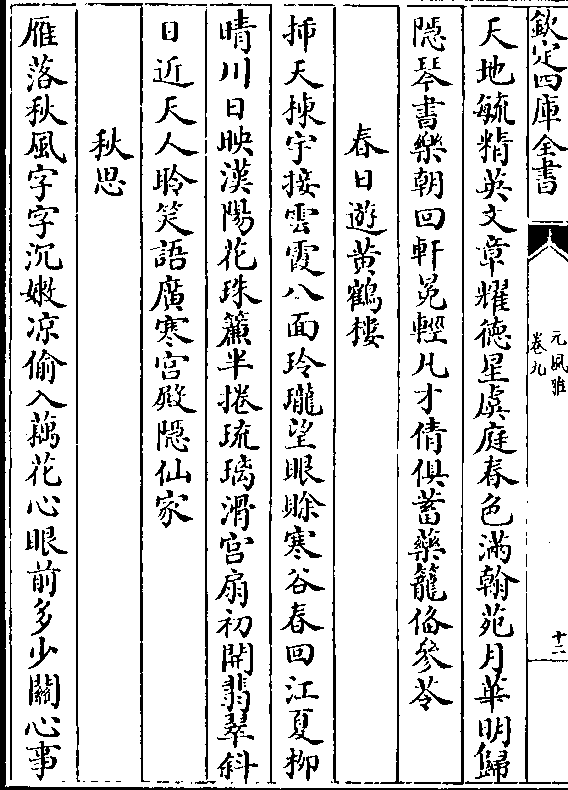 欽定四庫全書
元風雅
卷九
十二
天地毓精英文章耀德星虞庭春色滿翰苑月華明歸
隠琴書樂朝回軒冕輕凡才倩俱蓄藥籠俻參苓
春日遊黄鶴樓
挿天棟宇接雲霞八面玲瓏望眼賖寒谷春回江夏栁
晴川日映漢陽花珠簾半捲琉璃滑宫扇初開翡翠斜
日近天人聆笑語廣寒宫殿隠仙家
秋思
雁落秋風字字沉嫩凉偷入藕花心眼前多少關心事